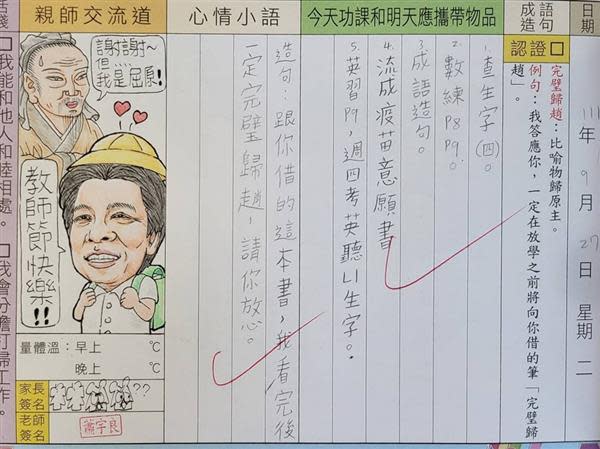 日期
111年9月27日 星期二
成語造句
認證□
完璧歸趙：比喻物歸原主。
例句：我答應你，一定在放學之前將向你借的筆「完璧歸
趙」。
今天功課和明天應攜帶物品
1.查生字(四)。
2.數練P8 P9。
3.成語造句。
4.流感疫苗意願書
5.英習P9，週四考英聽L1生字。
心情小語
造句：跟你借的這本書，我看完後
一定完璧歸趙，請你放心。
親師交流道
謝謝~
但我是屈原！
教師節快樂!!
量體溫：早上 ℃
晚上 ℃
家長簽名
??
老師簽名
蕭宇良
□我能和他人和睦相處。
□我會分擔打掃工作。